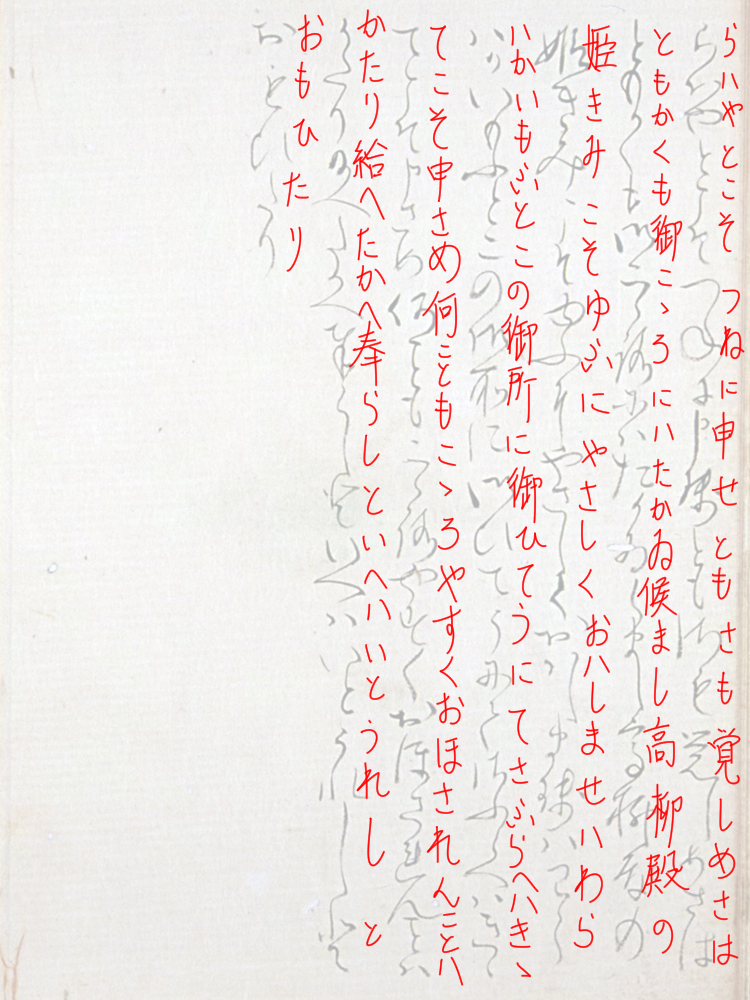 らハやとこそつねに申せともさも覚しめさは
ともかくも御こゝろにハたかゐ候まし高柳殿の
姫きみこそゆふにやさしくおハしませハわら
ハかいもふとこの御所に御ひてうにてさふらへハきゝ
てこそ申さめ何こともこゝろやすくおほされんことハ
かたり給へたかへ奉らしといへハいとうれしと
おもひたり